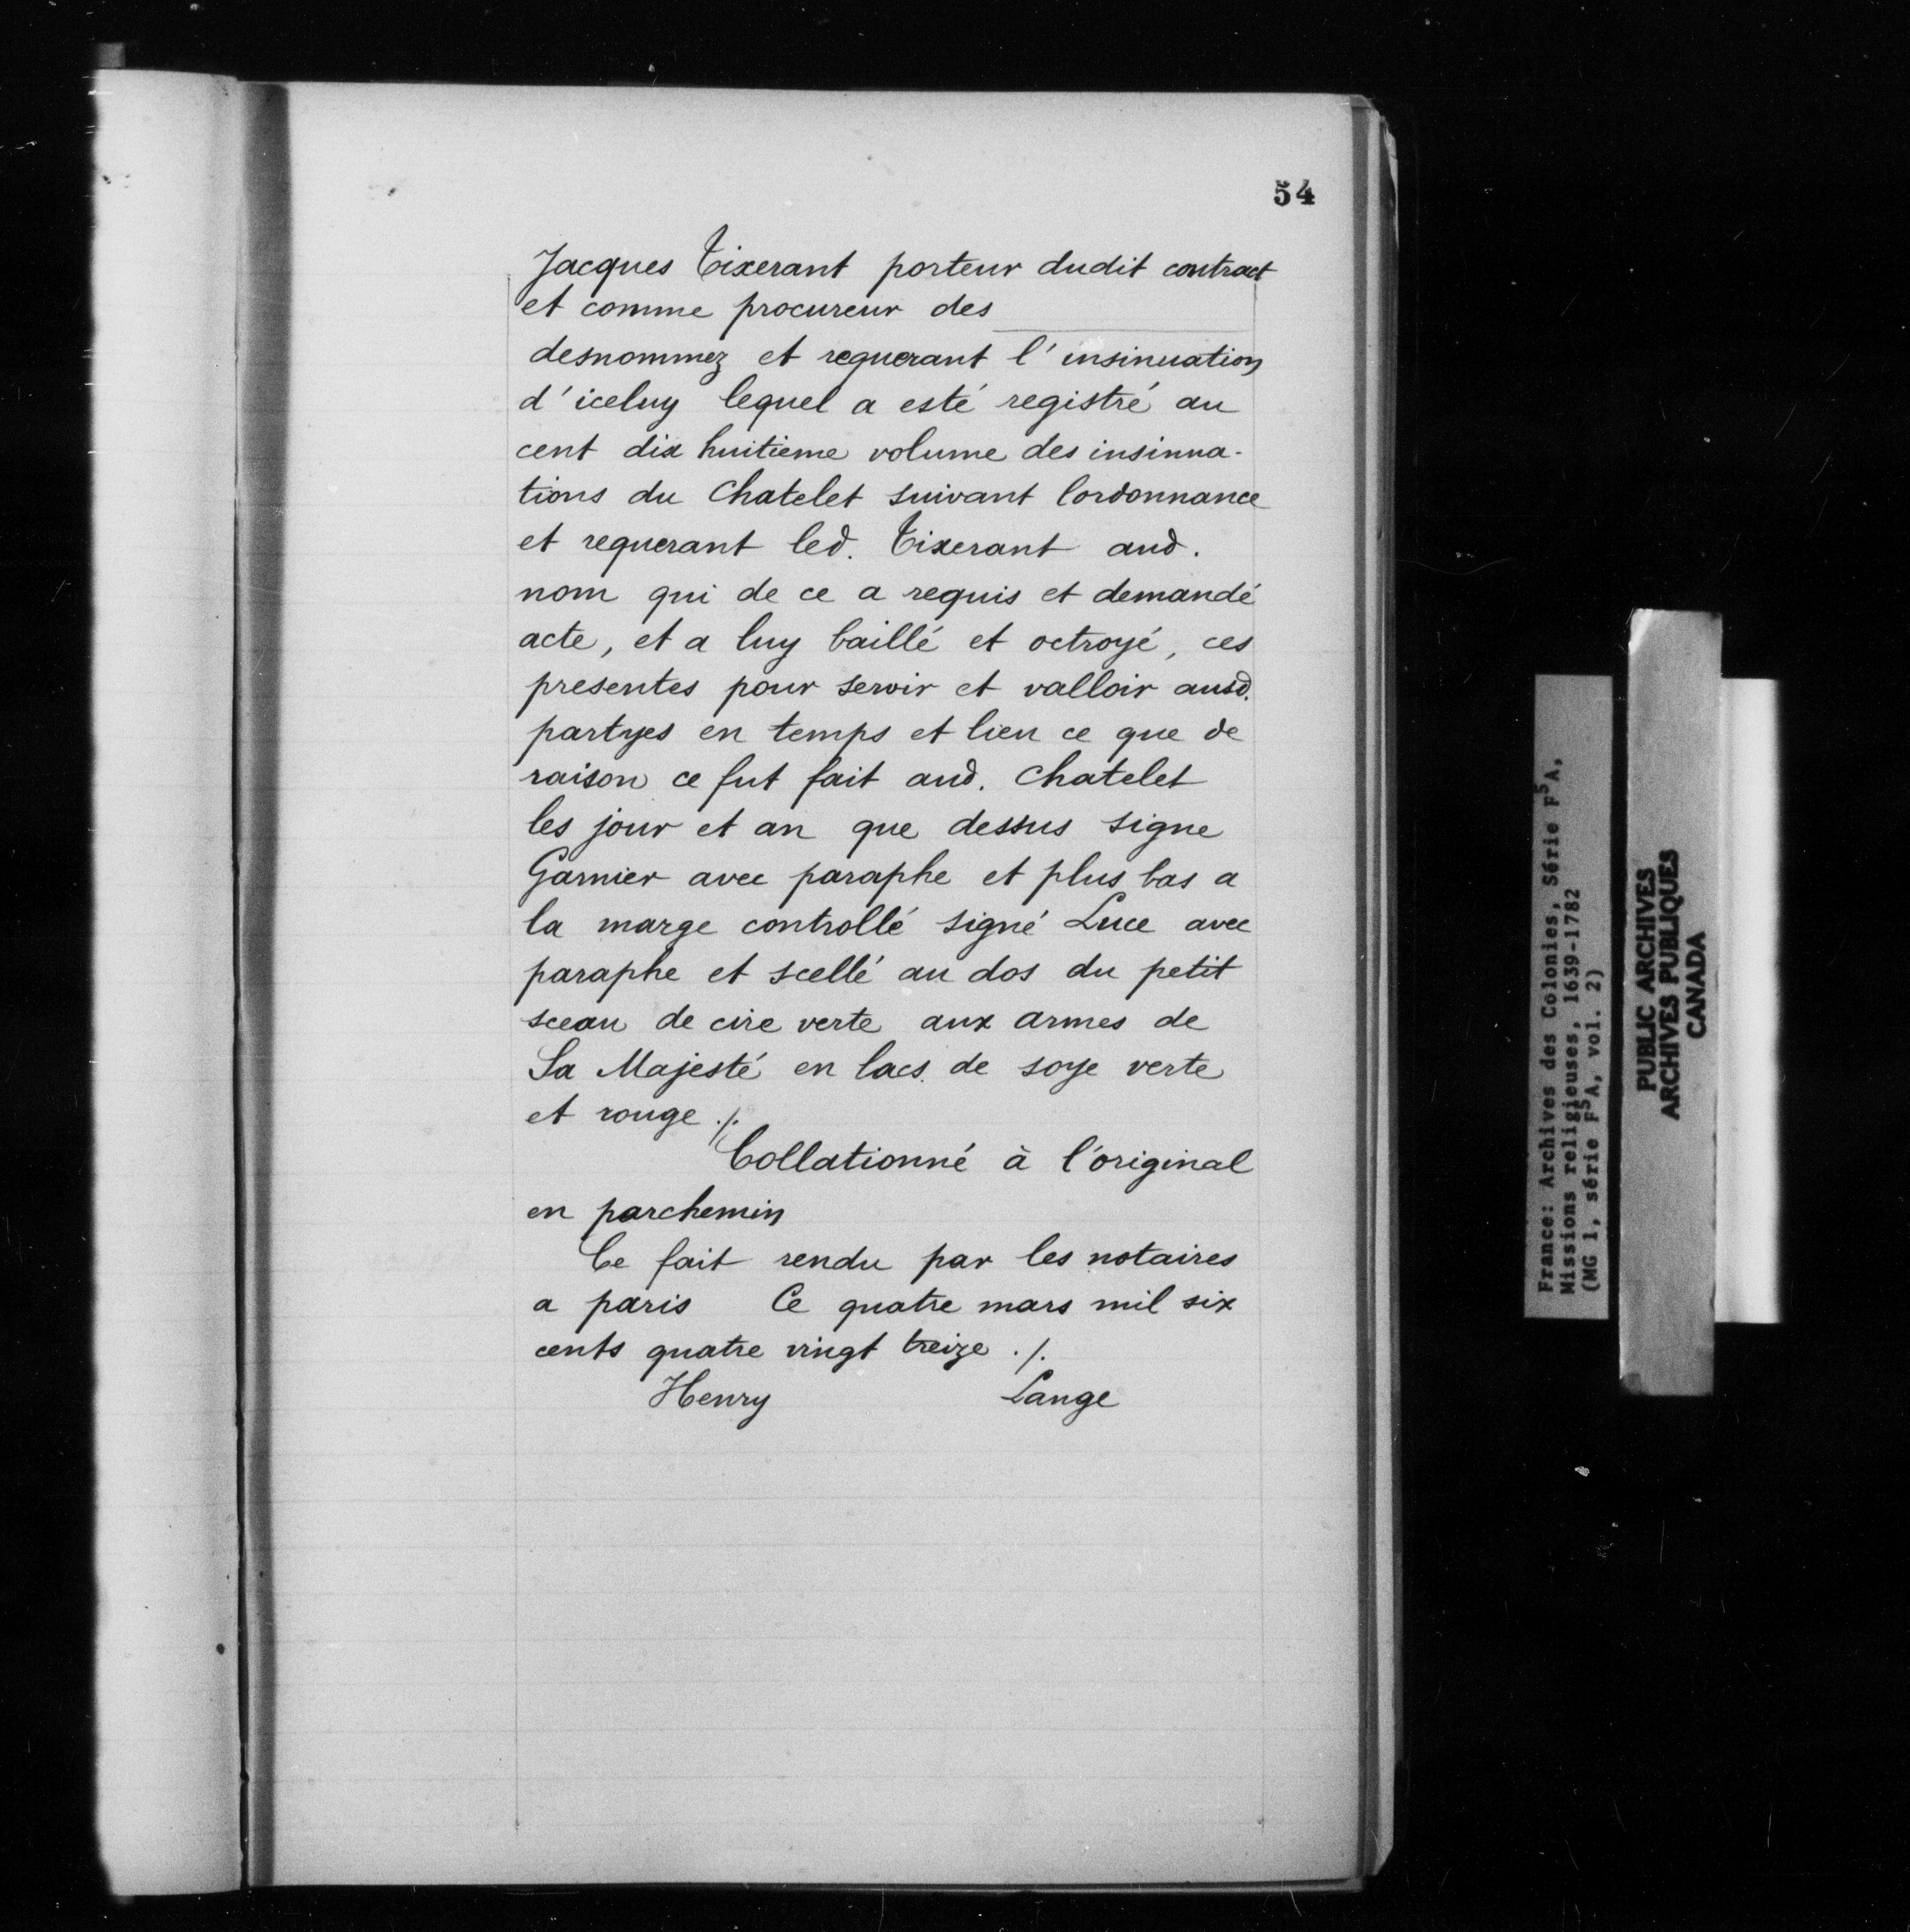 54
Jacques Tixerant porteur dudit contract
et comme procureur des
desnommez et requerant l'insinuation
d'iceluy lequel a esté registré au
cent dix huitieme volume des insinua-
tions du Chatelet suivant lordonnance
et requerant led. Tixerant aud.
nom qui de ce a requis et demandé
acte, et a luy baillé et octroyé, ces
presentes pour servir et valloir ausd.
partyes en temps et lieu ce que de
raison ce fut fait aud. Chatelet
les jour et an que dessus signe
Garnier avec paraphe et plus bas a
la marge controllé signé Luce avec
paraphe et scellé au dos du petit
sceau de cire verte aux armes de
Sa Majesté en lacs de soye verte
et rouge ./.
Collationné à l'original
en parchemin
Ce fait rendu par les notaires
a paris Ce quatre mars mil six
cents quatre vingt treize ./.
Henry Lange
France: Archives des Colonies, Série F⁵A,
Missions religieuses, 1639-1782
(MG 1, série F⁵A, vol. 2)
PUBLIC ARCHIVES
ARCHIVES PUBLIQUES
CANADA